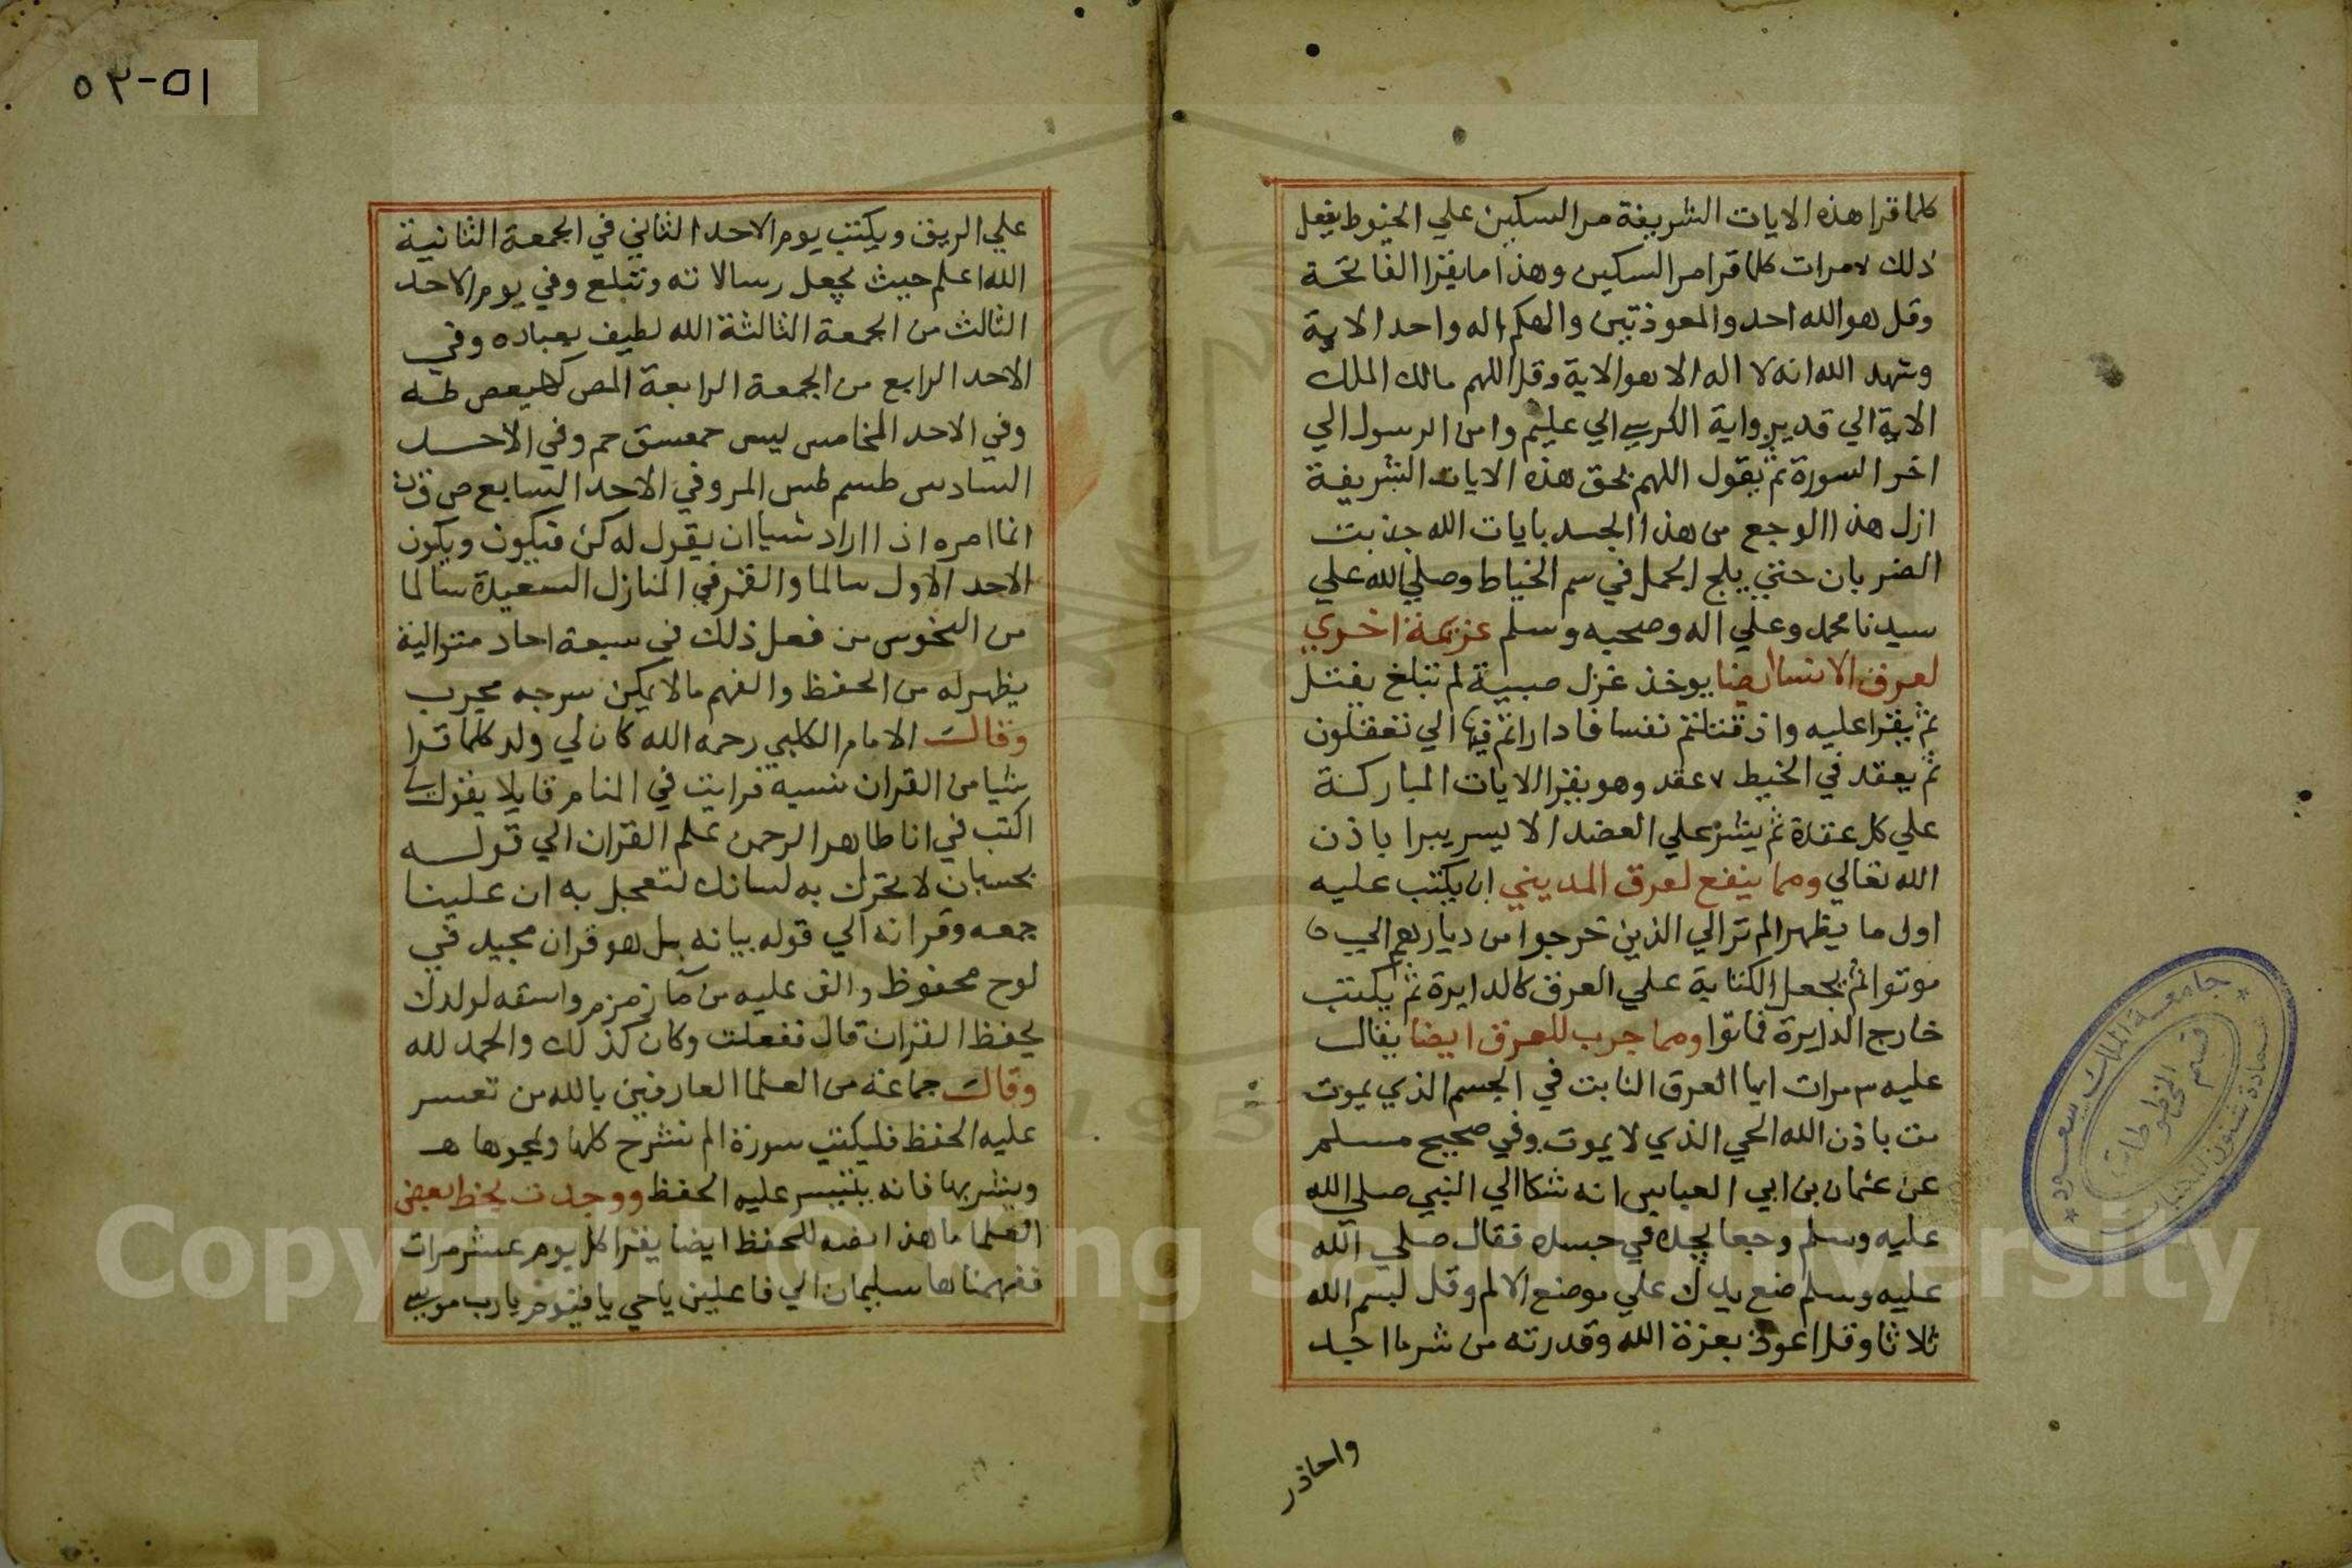 كلما قرا هذه الايات الشريفة مر السكين علي الخيوط يفعل
ذلك ٧ مرات كلما قرا مر السكين وهذا ما يقرا الفاتحة
وقل هو الله احد والمعوذتين والهكم اله واحد الاية
وشهد الله انه لا اله الا هو الاية وقل اللهم مالك الملك
الاية الي قدير واية الكرسي الي عليم وامن الرسول الي
اخر السورة ثم يقول اللهم بحق هذه الايات الشريفة
ازل هذا الوجع من هذا الجسد بايات الله جذبت
الضربان حتي يلج الجمل في سم الخياط وصلي الله علي
سيدنا محمد وعلي اله وصحبه وسلم عزيمة اخري
لعرق الانسا ايضا يوخذ غزل صبية لم تبلغ يفتل
ثم يقرا عليه واذ قتلتم نفسا فاداراتم فيها الي تعقلون
ثم يعقد في الخيط ٧ عقد وهو يقرا الايات المباركة
علي كل عقدة ثم يشد علي العضد الايسر يبرا باذن
الله تعالي ومما ينفع لعرق المديني ان يكتب عليه
اول ما يظهر الم تر الي الذين خرجوا من ديارهم الي
موتوا ثم يجعل الكتابة علي العرق كالدايرة ثم يكتب
خارج الدايرة فماتوا ومما جرب للعرق ايضا يقال
عليه ٣ مرات ايها العرق النابت في الجسم الذي يموت
مت باذن الله الحي الذي لا يموت وفي صحيح مسلم
عن عثمان بن ابي العباس انه شكا الي النبي صلي الله
عليه وسلم وجعا يجده في جسده فقال صلي الله
عليه وسلم ضع يدك علي موضع الالم وقل بسم الله
ثلاثا وقل اعوذ بعزة الله وقدرته من شر ما اجد
واحاذر
٥١-٥٢
علي الريق ويكتب يوم الاحد الثاني في الجمعة الثانية
الله اعلم حيث يجعل رسالاته وتبلع وفي يوم الاحد
الثالث من الجمعة الثالثة الله لطيف بعباده وفي
الاحد الرابع من الجمعة الرابعة المص كهيعص طه
وفي الاحد الخامس يس حمعسق حم وفي الاحد
السادس طسم طس المر وفي الاحد السابع ص ق ن
انما امره اذا اراد شيا ان يقول له كن فيكون ويكون
الاحد الاول سالما والقمر في المنازل السعيدة سالما
من النحوس من فعل ذلك في سبعة احاد متوالية
يظهر له من الحفظ والفهم ما لا يمكن سرحه مجرب
وقال الامام الكلبي رحمه الله كان لي ولد كلما قرا
شيا من القران نسيه فرايت في المنام قايلا يقول لي
اكتب في انا طاهر الرحمن علم القران الي قوله
بحسبان لا تحرك به لسانك لتعجل به ان علينا
جمعه وقرانه الي قوله بيانه بل هو قران مجيد في
لوح محفوظ والق عليه من ما زمزم واسقه لولدك
يحفظ القران قال ففعلت وكان كذلك والحمد لله
وقال جماعة من العلما العارفين بالله من تعسر
عليه الحفظ فليكتب سورة الم نشرح كلها ويمحوها
ويشربها فانه يتيسر عليه الحفظ ووجدت بخط بعض
العلما ما هذا نصه للحفظ ايضا يقرا كل يوم عشر مرات
ففهمناها سليمان الي فاعلين يا حي يا قيوم يا رب موسي
جامعة الملك سعود
عمادة شئون المكتبات
قسم المخطوطات
Copyright © King Saud University